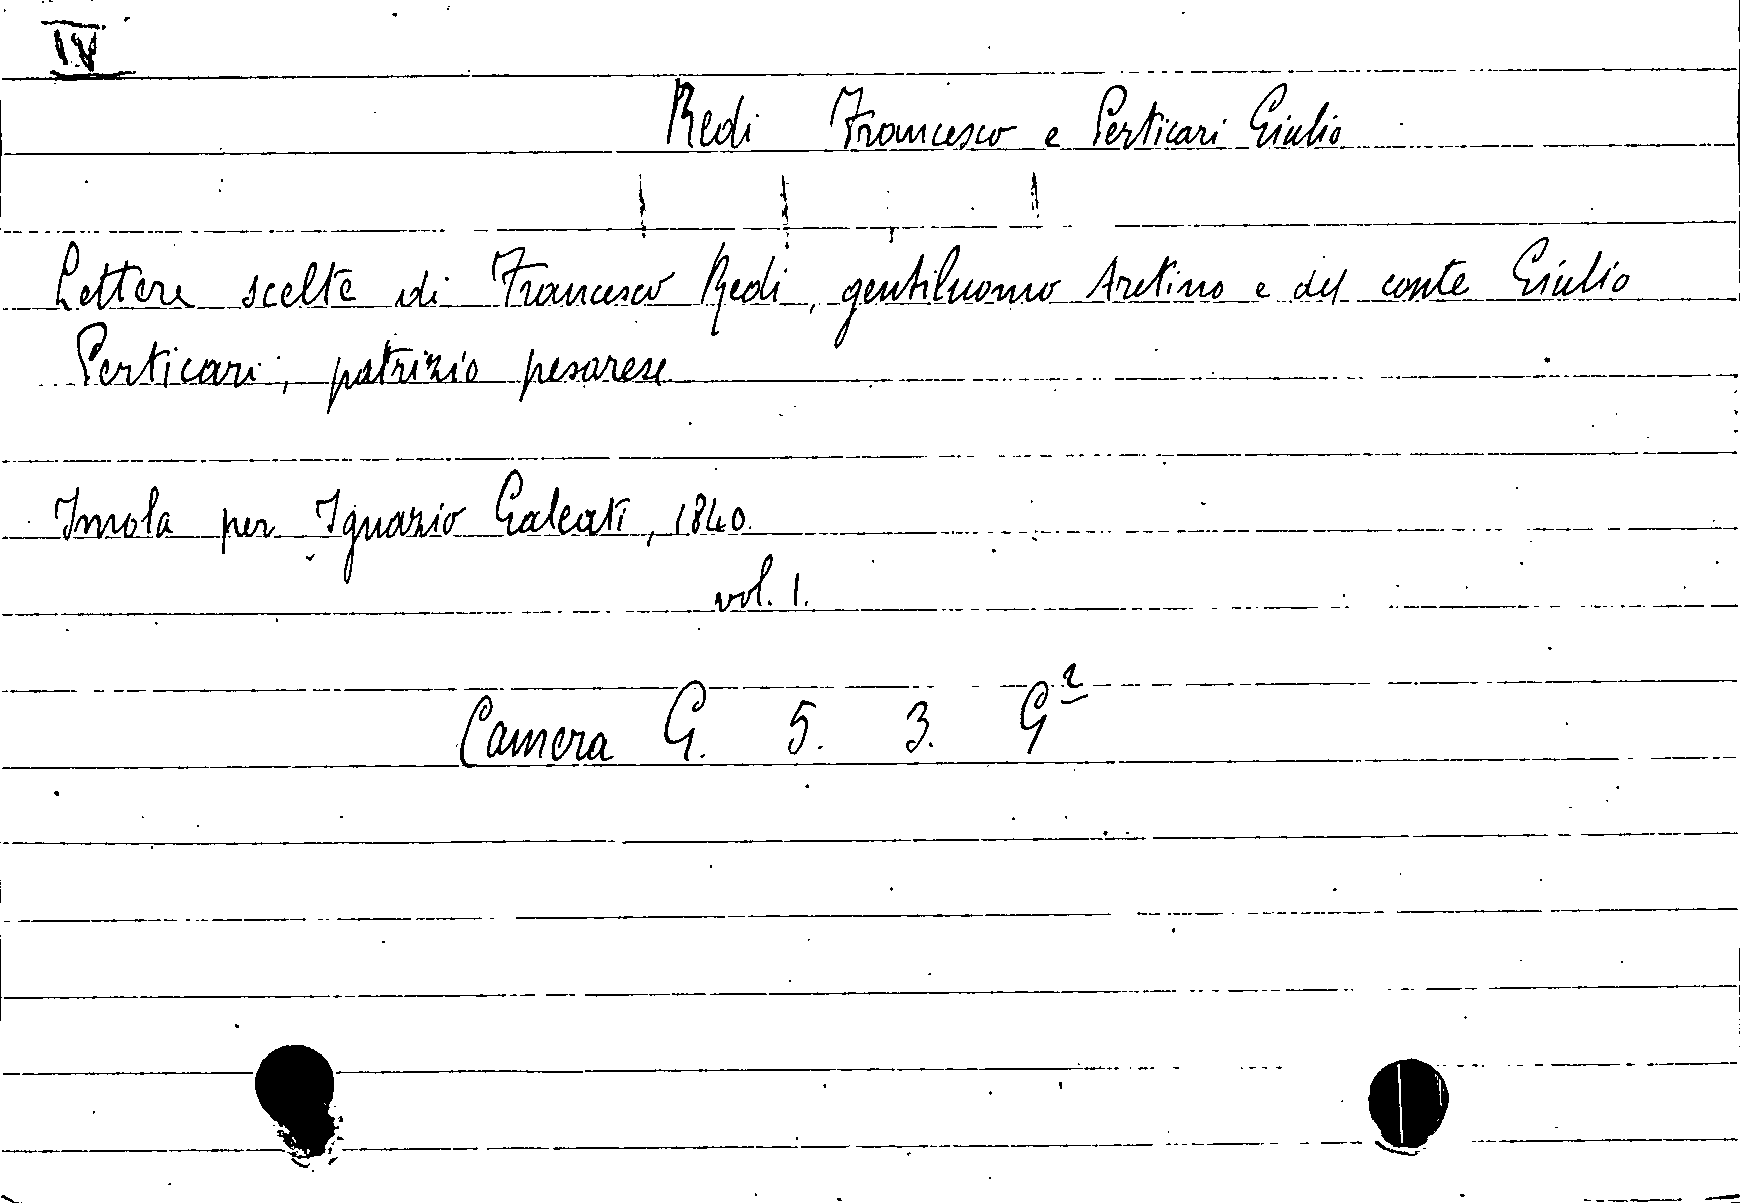 IV
Redi Francesco e Perticari Giulio
Lettere scelte di Francesco Redi, gentiluomo Aretino e del conte Giulio
Perticari, patrizio pesarese
Imola per Ignazio Galeati, 1840.
vol. 1.
Camera G. 5. 3. G²